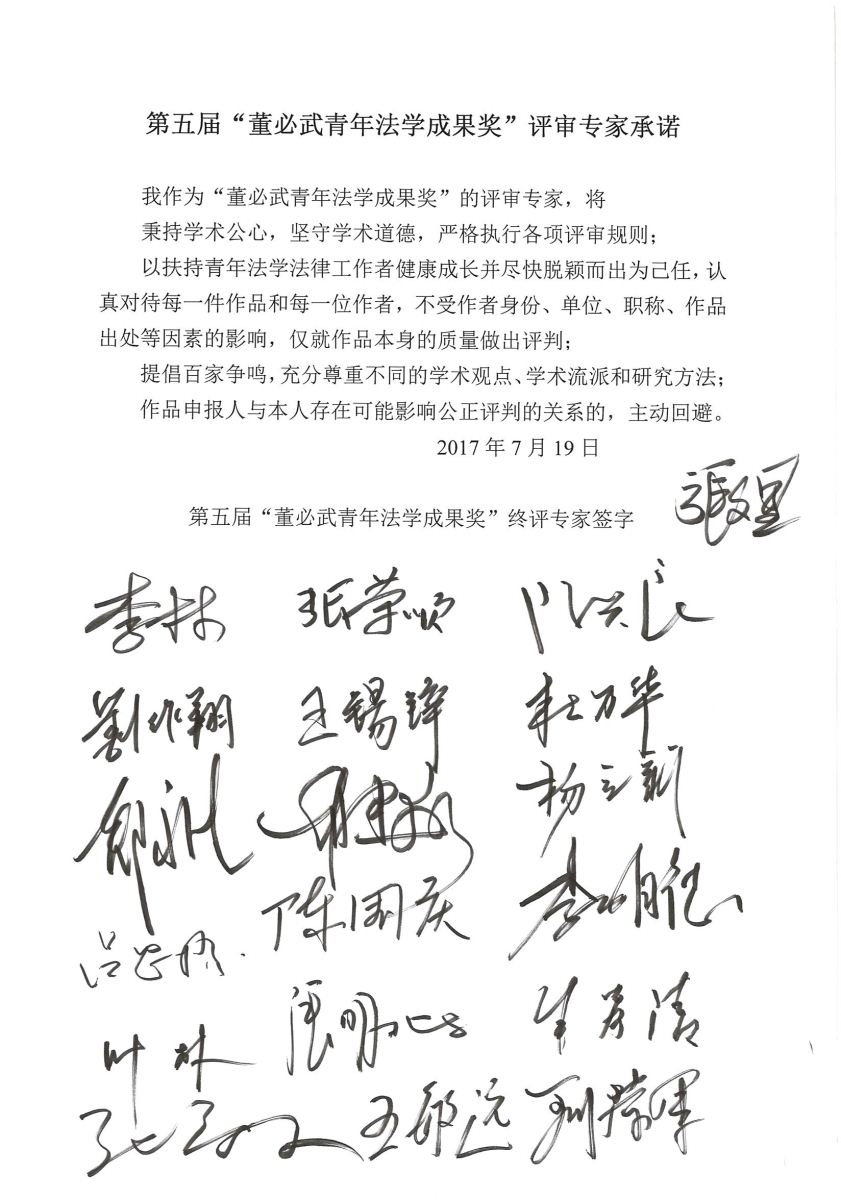 第五届“董必武青年法学成果奖”评审专家承诺
我作为“董必武青年法学成果奖”的评审专家，将
秉持学术公心，坚守学术道德，严格执行各项评审规则；
以扶持青年法学法律工作者健康成长并尽快脱颖而出为己任，认
真对待每一件作品和每一位作者，不受作者身份、单位、职称、作品
出处等因素的影响，仅就作品本身的质量做出评判；
提倡百家争鸣，充分尊重不同的学术观点、学术流派和研究方法；
作品申报人与本人存在可能影响公正评判的关系的，主动回避。
2017 年 7 月 19 日
第五届“董必武青年法学成果奖”终评专家签字
李林 张荣顺
劉作翔 王锡锌 杜万华
杨立新
陈国庆
叶林
王敏远